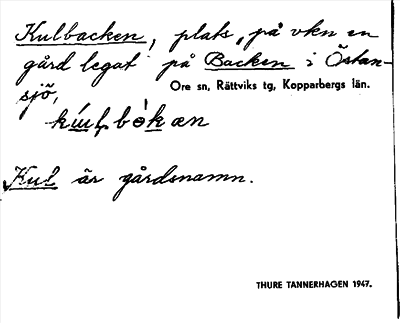 Kulbacken, plats, på vkn en
gård legat på Backen i Östan-
sjö,
Ore sn, Rättviks tg, Kopparbergs län.
Kul är gårdsnamn.
THURE TANNERHAGEN 1947.